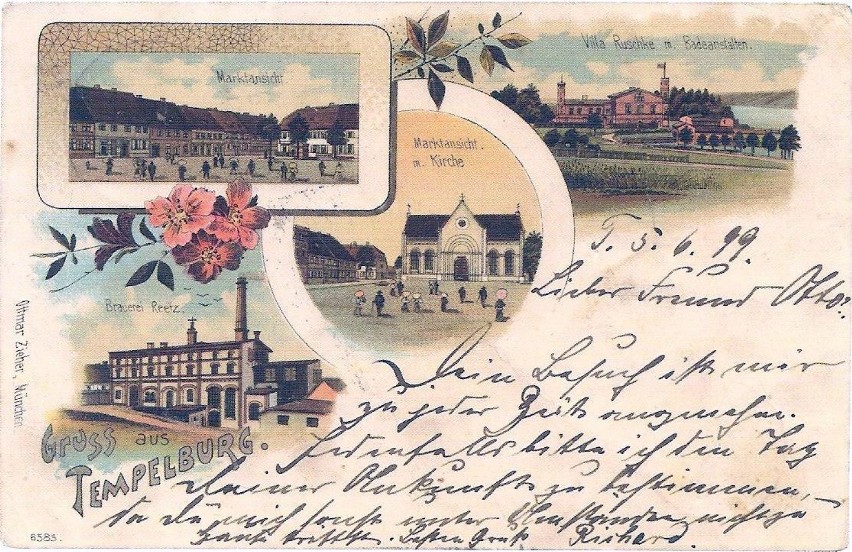 Marktansicht
Villa Ruschke m. Badeanstalten.
Marktansicht.
m. Kirche
Brauerei Reetz.
Ottmar Zieher, München
GRUSS aus
TEMPELBURG.
6583.
T. 5. 6. 99.
Lieber Freund Otto!
Dein Besuch ist mir
zu jeder Zeit angenehm.
Jedenfalls bitte ich den Tag
Deiner Ankunft zu bestimmen,
da Du mich sonst unter Umständen nicht zu
Hause triffst. Besten Gruß Richard.